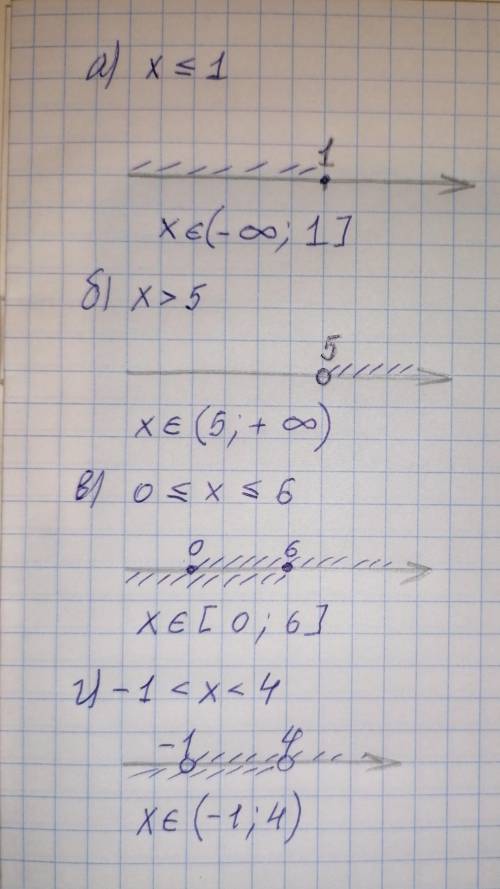 а) x ≤ 1
1
x ∈ (-∞; 1]
б) x > 5
5
x ∈ (5; + ∞)
в) 0 ≤ x ≤ 6
0 6
x ∈ [0; 6]
г) -1 < x < 4
-1 4
x ∈ (-1; 4)